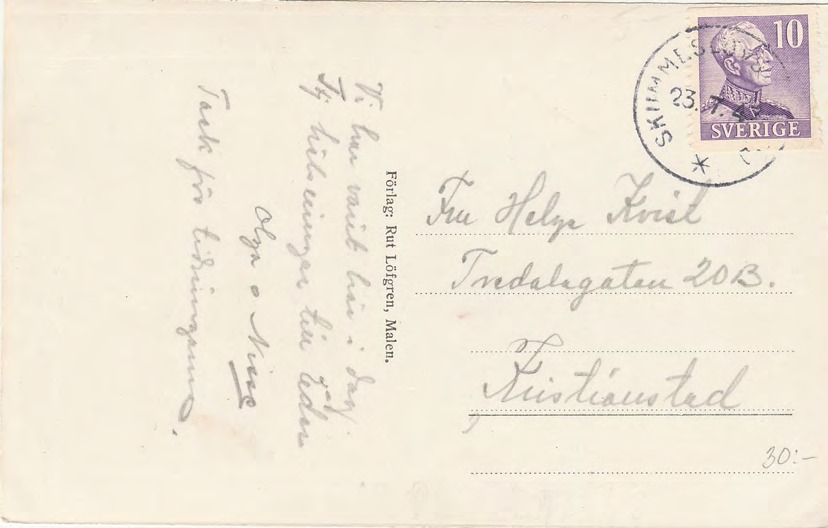 Vi har varit här i dag.
hälsningar till Eder
Olga o Nisse
Tack för tidningarna.
Förlag: Rut Löfgren, Malen.
10
SVERIGE
SKUMMESLÖVS
23.7.4
Fru Helga Kvist
Tredalagatan 20B.
Kristianstad
30:-